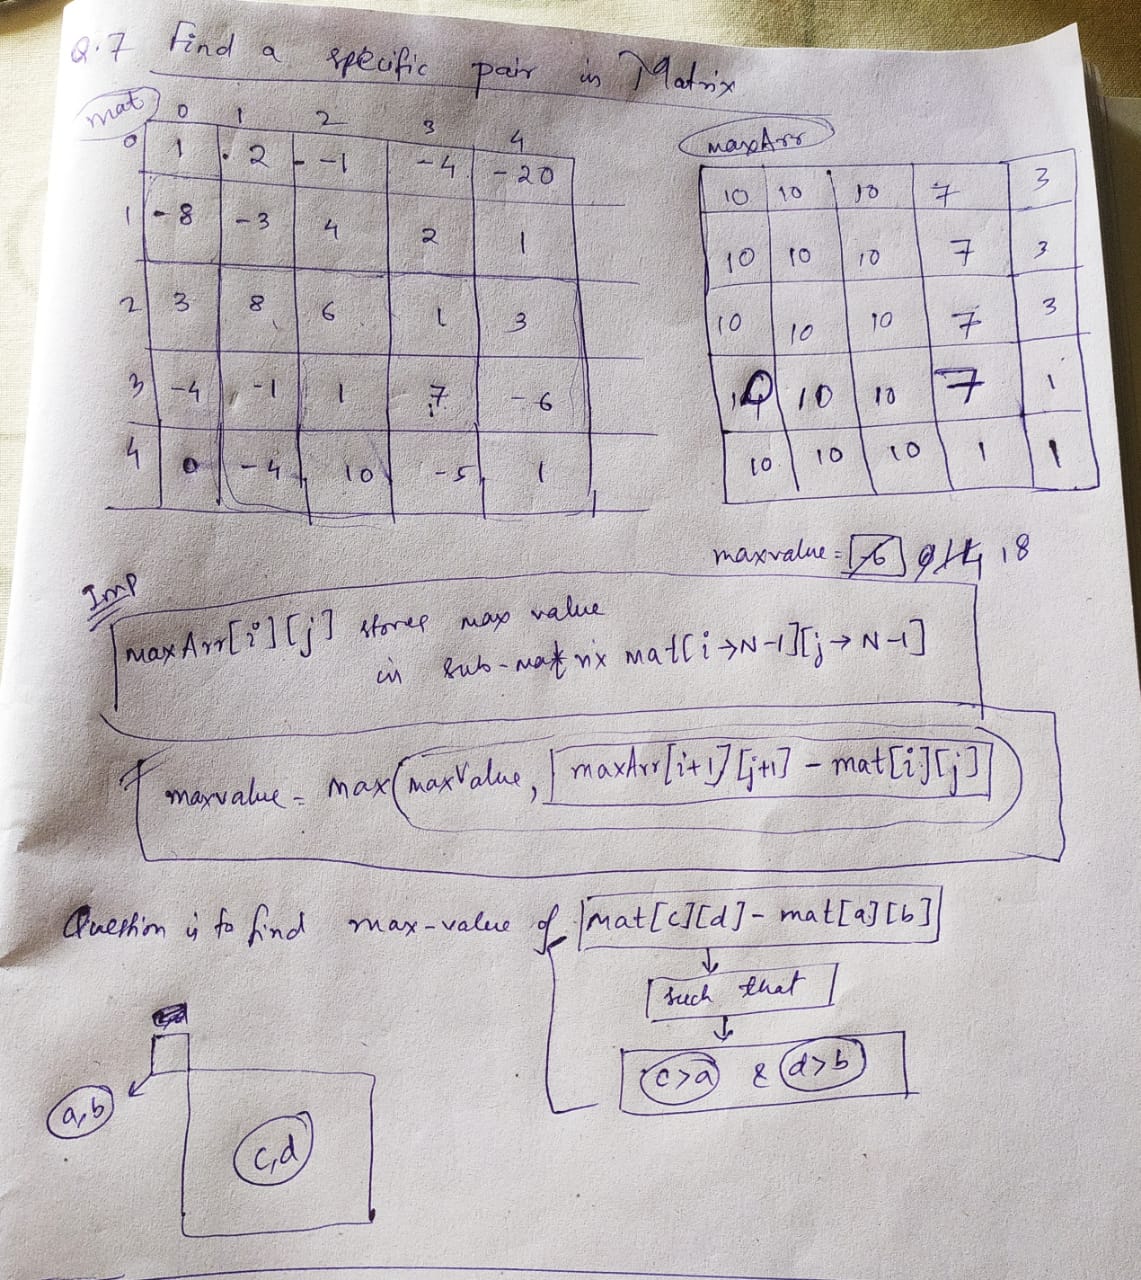 Q.7 Find a specific pair in Matrix
mat
0 1 2 3 4
0 1 2 -1 -4 -20
1 -8 -3 4 2 1
2 3 8 6 1 3
3 -4 -1 1 7 -6
4 0 -4 10 -5 1
maxArr
10 10 10 7 3
10 10 10 7 3
10 10 10 7 3
10 10 10 7 1
10 10 10 1 1
maxvalue = 18
Imp
maxArr[i][j] stores max value
in sub-matrix mat[i→N-1][j→N-1]
maxvalue = max(maxValue, maxArr[i+1][j+1] - mat[i][j])
Question is to find max-value of mat[c][d] - mat[a][b]
such that
c>a & d>b
a,b
c,d